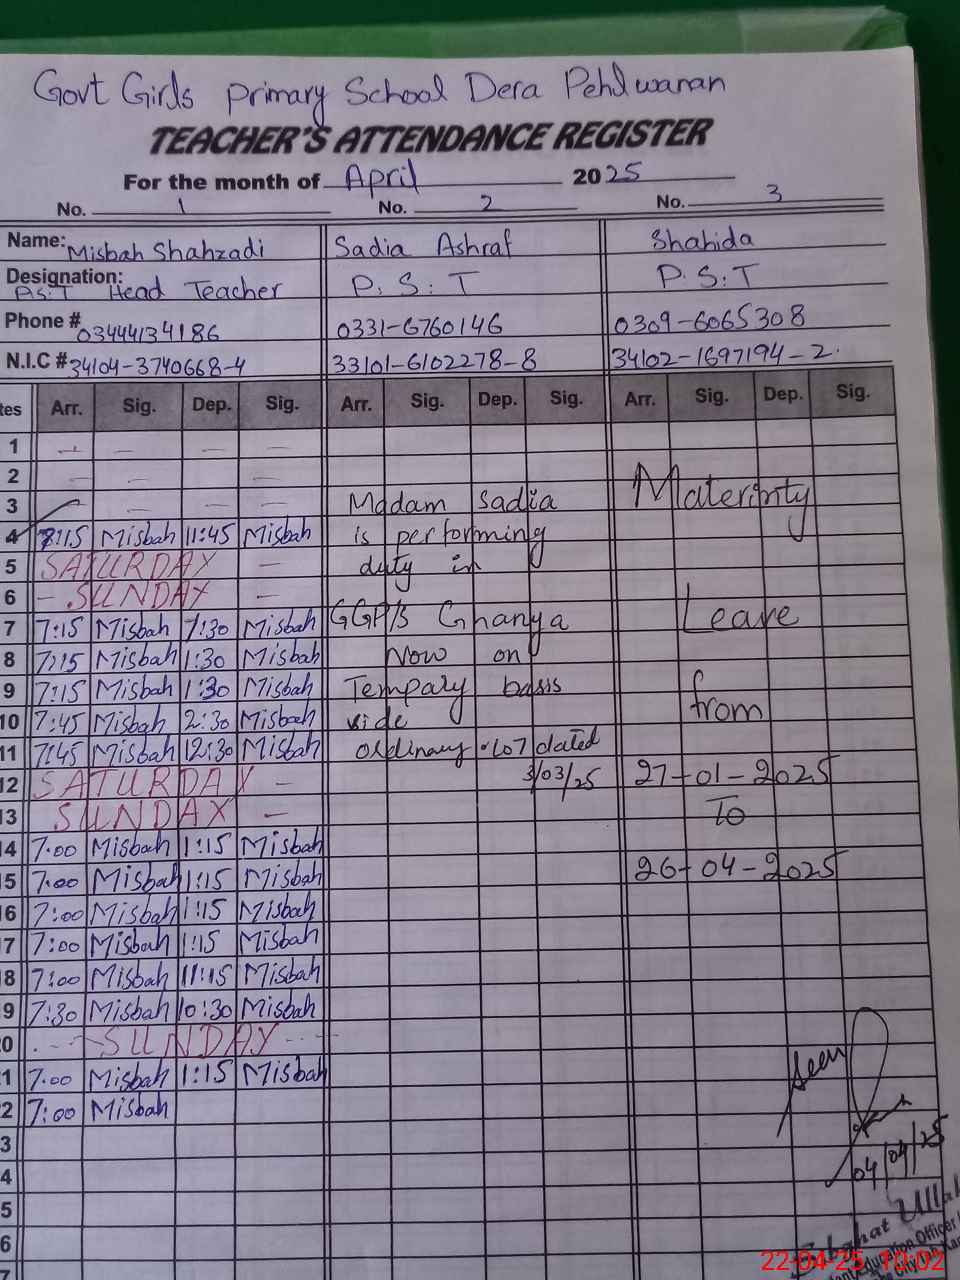 Govt Girls Primary School Dera Pehlwanan
TEACHER'S ATTENDANCE REGISTER
For the month of April 2025
No. 1 No. 2 No. 3
Name: Misbah Shahzadi Sadia Ashraf Shahida
Designation: P.S.T Head Teacher P.S.T P.S.T
Phone # 03444134186 0331-6760146 0309-6065308
N.I.C # 34104-3740668-4 33101-6102278-8 34102-1697194-2.
tes Arr. Sig. Dep. Sig. Arr. Sig. Dep. Sig. Arr. Sig. Dep. Sig.
1 — — — —
2 — — — Materinty
3 — — — Madam Sadia
4 8:15 Misbah 11:45 Misbah is performing
5 SATURDAY — duty in
6 - SUNDAY —
7 7:15 Misbah 1:30 Misbah GGP/s Ghanya Leave
8 7:15 Misbah 1:30 Misbah Now on
9 7:15 Misbah 1:30 Misbah Tempary basis
10 7:45 Misbah 2:30 Misbah vide from
11 7:45 Misbah 12:30 Misbah ordinary .107 dated
12 SATURDAY — 3/03/25 27-01-2025
13 SUNDAY — To
14 7:00 Misbah 1:15 Misbah
15 7:00 Misbah 1:15 Misbah 26-04-2025
16 7:00 Misbah 1:15 Misbah
17 7:00 Misbah 1:15 Misbah
18 7:00 Misbah 11:15 Misbah
9 7:30 Misbah 10:30 Misbah
0 SUNDAY
1 7:00 Misbah 1:15 Misbah
2 7:00 Misbah
3
4
5
6
7
Seen
04/04/25
Ullah
Education Officer
22-04-25 10:02